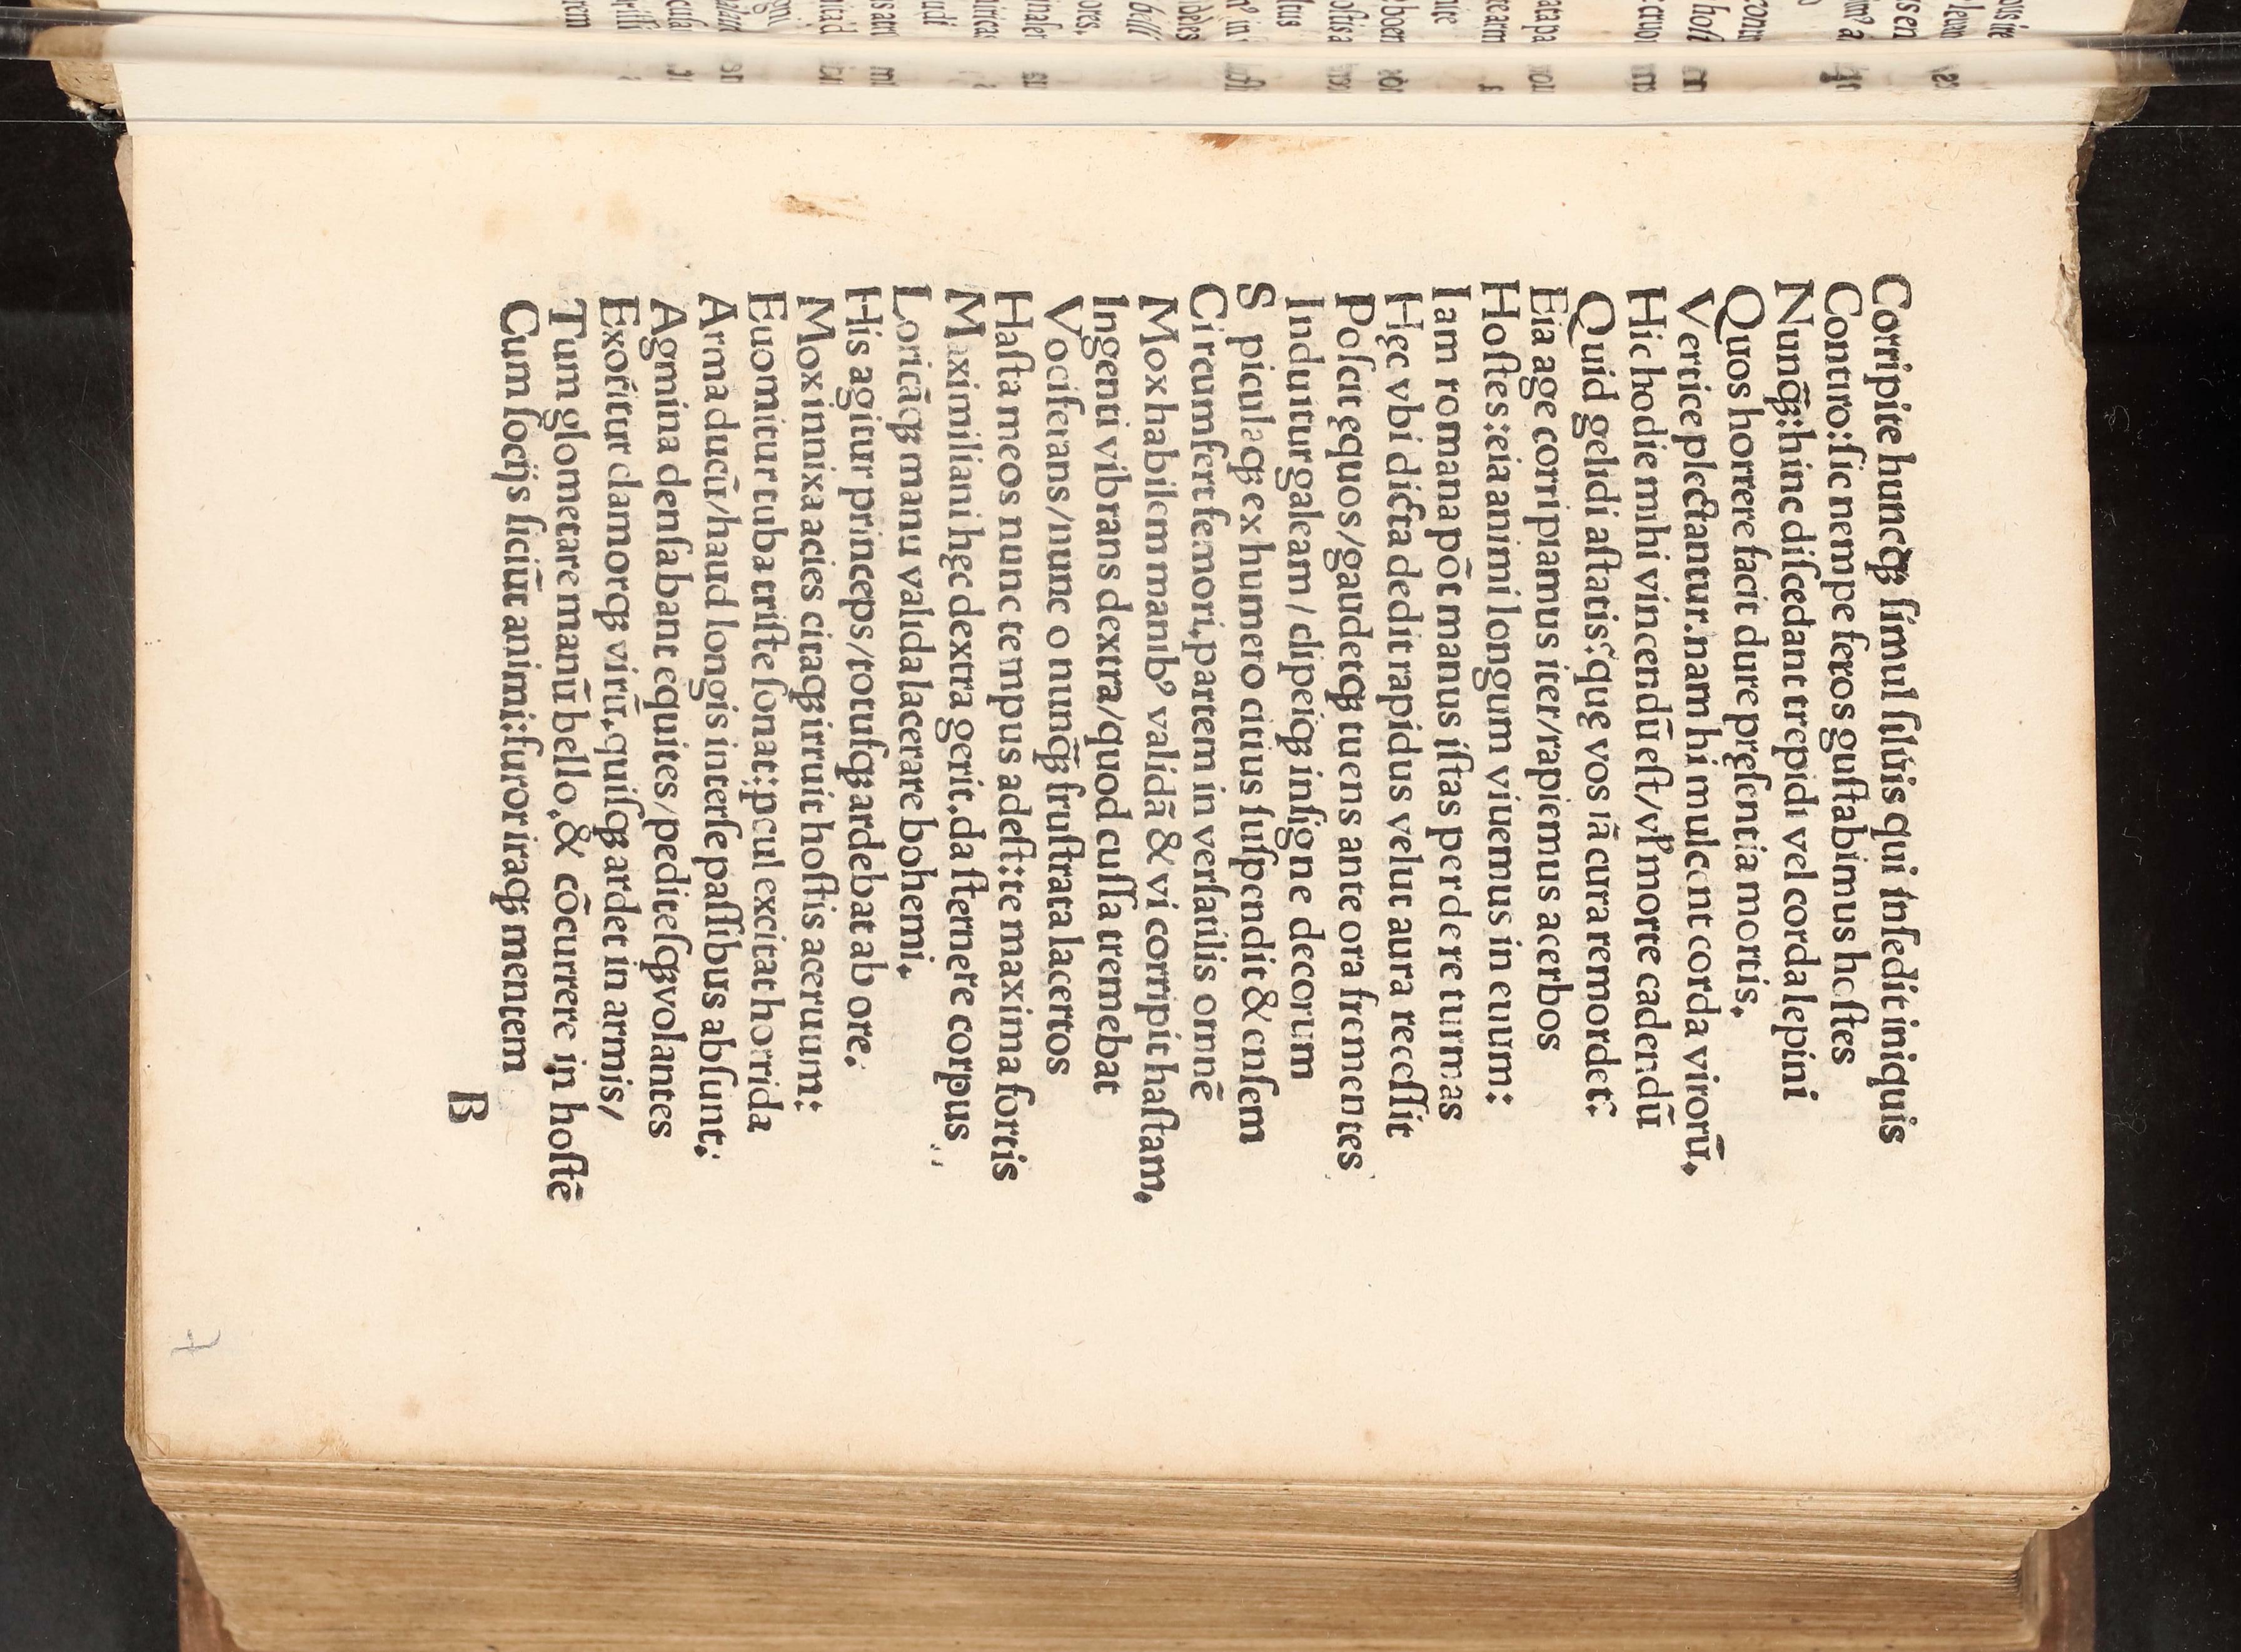 Corripite huncqꝫ ſimul ſultis qui inſedit iniquis
Conturo:ſic nempe feros guſtabimus hoſtes
Nunq̄ꝫ:hinc diſcedant trepidi vel corda lepini
Quos horrere facit dure pręſentia mortis.
Vertice plectantur.nam hi mulcent corda virorū.
Hic hodie mihi vincendū eſt/vꝉ morte cadendū
Quid gelidi aſtatis:quę vos iā cura remordet:
Eia age corripiamus iter/rapiemus acerbos
Hoſtes:eia animi longum viuemus in euum:
Iam romana pōt manus iſtas perdere turmas
Hęc vbi dicta dedit rapidus velut aura receſſit
Poſcit equos/gaudetqꝫ tuens ante ora frementes
Induitur galeam / clipeiqꝫ inſigne decorum
Spiculaqꝫ ex humero citius ſuſpendit & enſem
Circumfert femori.partem in verſatilis omnē
Mox habilem manibꝰ validā & vi corripit haſtam.
Ingenti vibrans dextra/quod cuſſa tremebat
Vociferans/nunc o nunq̄ꝫ fruſtrata lacertos
Haſta meos nunc tempus adeſt:te maxima fortis
Maximiliani hęc dextra gerit.da ſternere corpus
Loricāqꝫ manu valida lacerare bohemi.
His agitur princeps/totuſqꝫ ardebat ab ore.
Mox innixa acies citaqꝫ irruit hoſtis aceruum:
Euomitur tuba triſte ſonat:ꝓcul excitat horrida
Arma ducū/haud longis interſe paſſibus abſunt.
Agmina denſabant equites/pediteſqꝫ volantes
Exoritur clamorqꝫ virū.quiſqꝫ ardet in armis/
Tum glometare manū bello.& cōcurrere in hoſtē
Cum ſocijs ſiciūt animi:furor iraqꝫ mentem
B
7